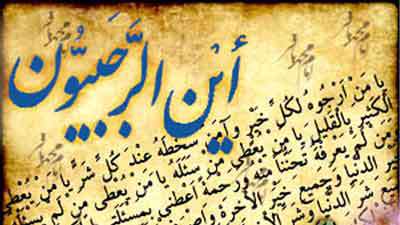 أَيْنَ الرَّجَبِيُّونَ
يا مَنْ اَرْجُوهُ لِكُلِّ خَيْرٍ وَ آمَنُ سَخَطَهُ عِنْدَ كُلِّ شَرٍّ يا مَنْ يُعْطِي
الْكَثيرَ بِالْقَليلِ يا مَنْ يُعْطي مَنْ سَئَلَهُ يا مَنْ يُعْطى مَنْ لَمْ يَسْئَلْهُ
وَمَنْ لَمْ يَعْرِفْهُ تَحَنُّناً مِنْهُ وَرَحْمَةً اَعْطِني بِمَسْئَلَتي
خَيْرِ الدُّنْيا وَجَميعَ خَيْرِ الاْخِرَةِ وَاصْرِفْ
شَرِّ الدُّنْيا وَشَرِّ